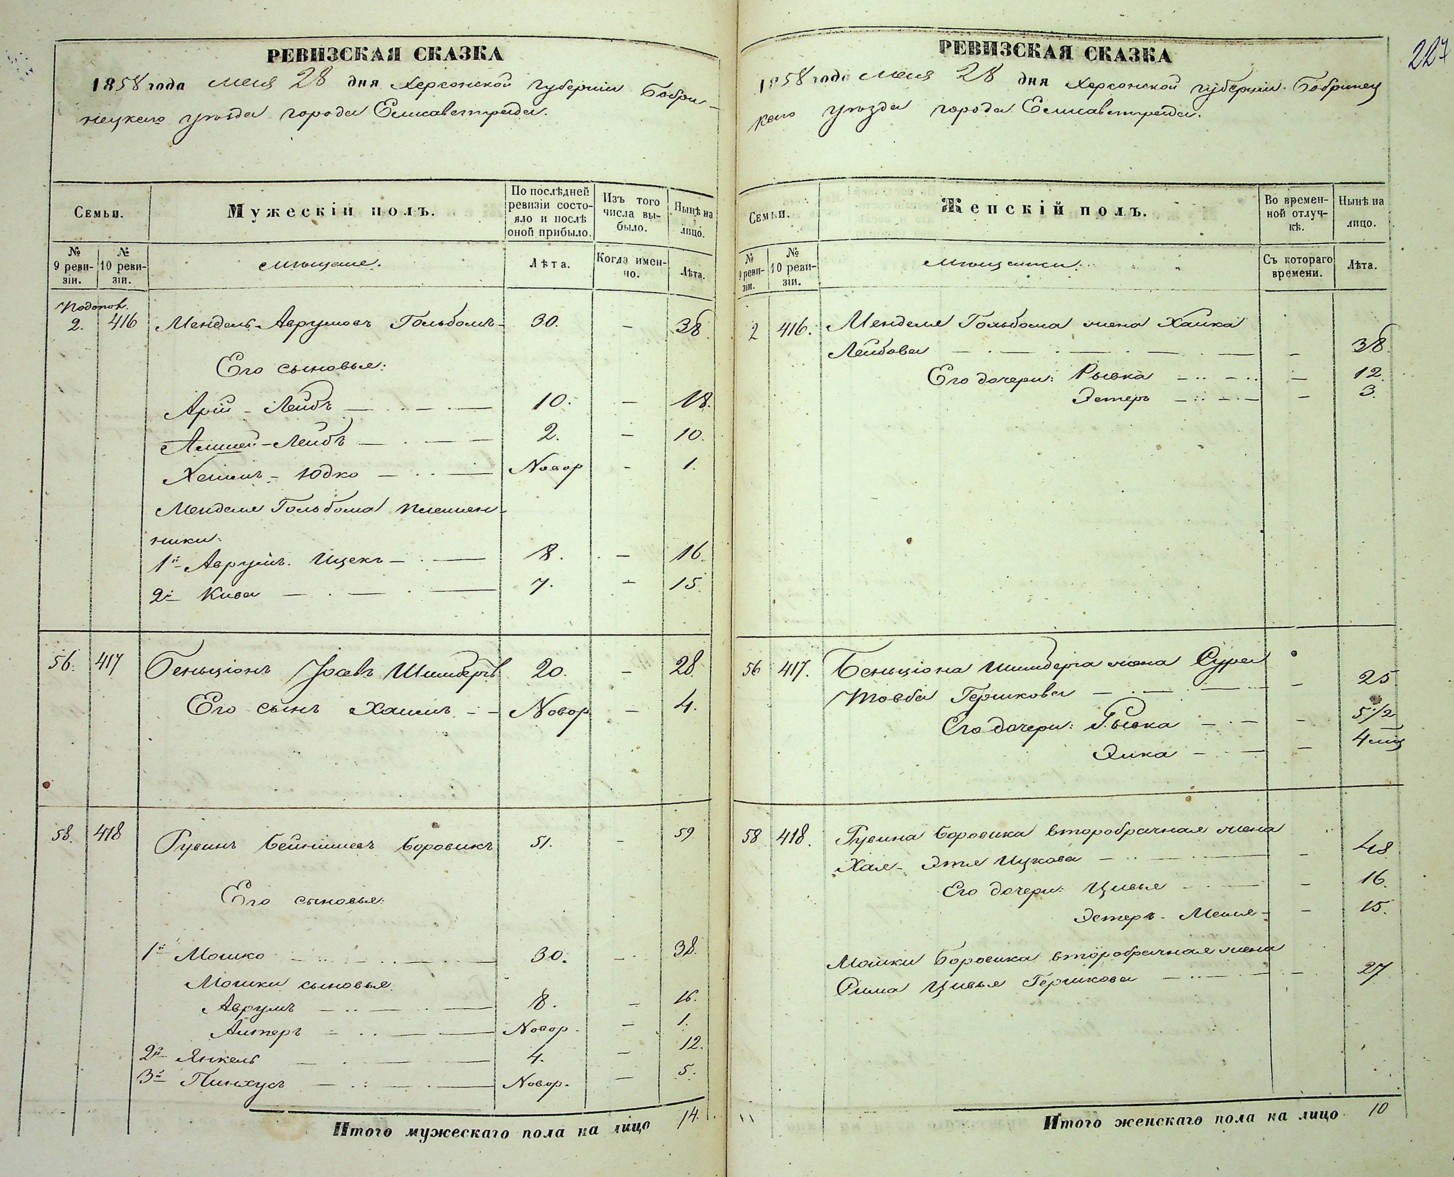 227
РЕВИЗСКАЯ СКАЗКА
1858 года мая 28 дня Херсонской губернiи Бобри-
нецкаго уѣзда города Елисаветграда.
Семьи.
Мужескiй полъ.
По послѣдней ревизiи состояло и послѣ оной прибыло.
Изъ того числа выбыло.
Нынѣ на лицо.
№ 9 ревизiи.
№ 10 ревизiи.
мѣщане.
Лѣта.
Когда именно.
Лѣта.
2. 416 Мендель Аврумовъ Гольбомъ 30. — 38.
Его сыновья:
Арiй - Лейбъ — 10. — 18.
Лейбъ — 2. — 10.
Хаимъ - Юдко — Новор — 1.
Менделя Гольбома племян-
ники:
1й Аврумъ Ицекъ — 8. — 16.
2й Кива — 7. — 15.
56. 417 Беньцiонъ Iосевъ Шимбергъ 20. — 28.
Его сынъ Хаимъ — Новор. — 4.
58. 418 Рувинъ Бейнишевъ Боровикъ 51. — 59
Его сыновья:
1й Мошко — 30. — 38.
Мошки сыновья.
Аврумъ — 8. — 16.
Алтеръ — Новор. — 1.
2й Янкель — 4. — 12.
3й Пинхусъ — Новор. — 5.
Итого мужескаго пола на лицо 14.
РЕВИЗСКАЯ СКАЗКА
1858 года мая 28 дня Херсонской губернiи Бобринец
каго уѣзда города Елисаветграда.
Семьи.
Женскiй полъ.
Во временной отлучкѣ.
Нынѣ на лицо.
№ 9 ревизiи.
№ 10 ревизiи.
мѣщанки.
Съ котораго времени.
Лѣта.
2 416. Менделя Гольбома жена Хайка
Лейбова — — 38.
Его дочери: Рывка — — 12.
Эстеръ — — 3.
56 417. Беньцiона Шимберга жена Сура
Товба Гершкова — — 25
Его дочери: Рывка — — 5 1/2
Элка — — 4 мѣс
58 418. Рувина Боровика второбрачная жена
Хая - Этя Ицкова — — 48
Его дочери: Цивья — 16.
Эстеръ - Меня — — 15.
Мошки Боровика второбрачная жена
Сима Цивья Гершкова — — 27
Итого женскаго пола на лицо 10